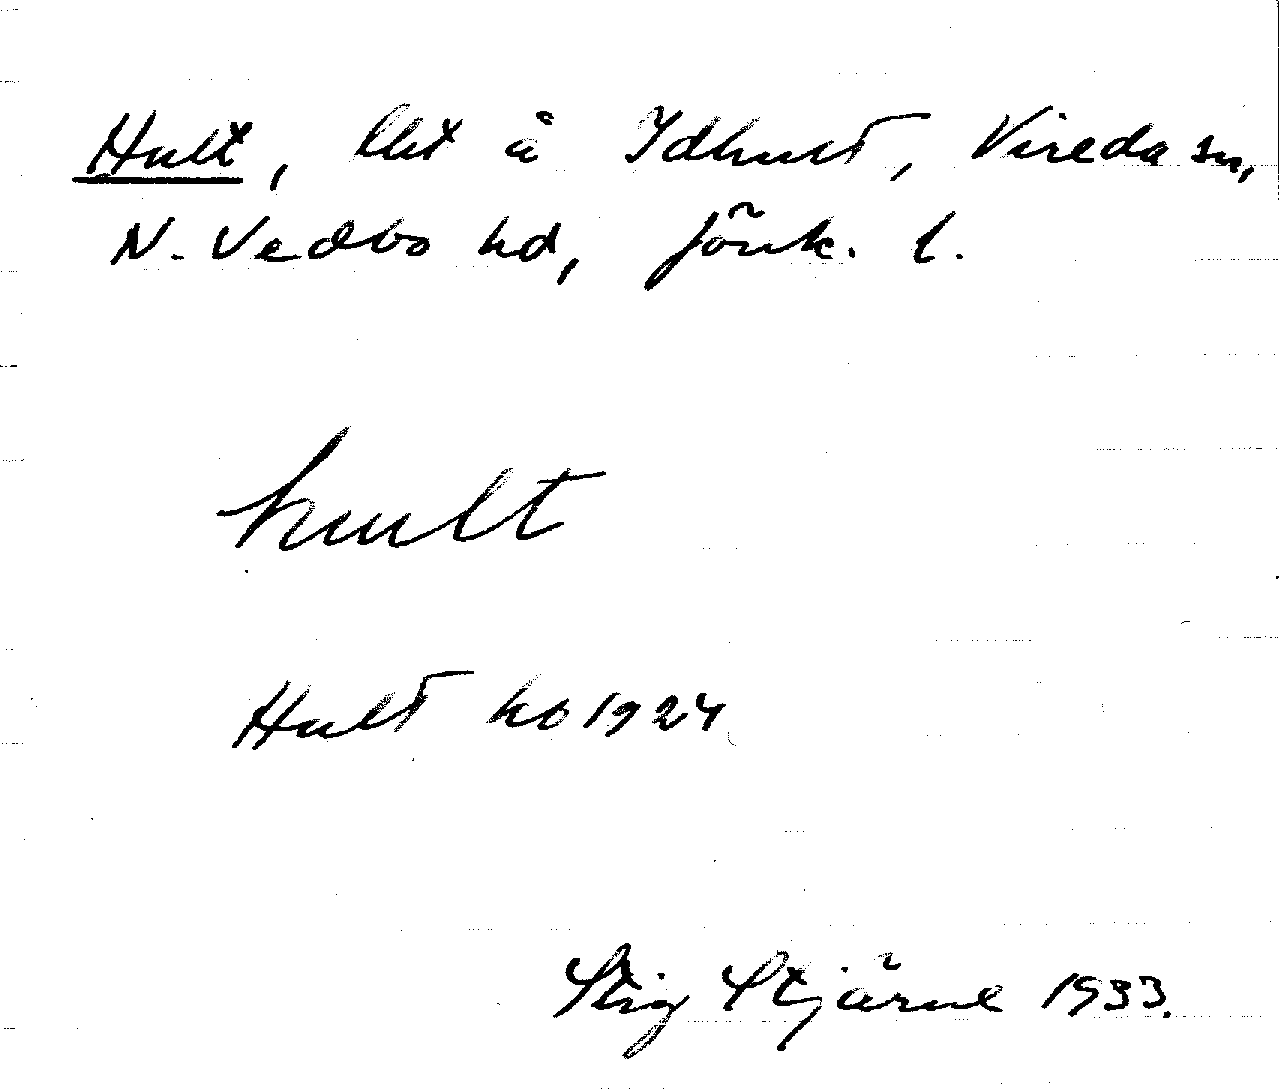 Hult, lht å Idhult, Vireda sn,
N. Vedbo hd, Jönk. l.
hult
Hult kb 1924
Stig Stjärne 1933.